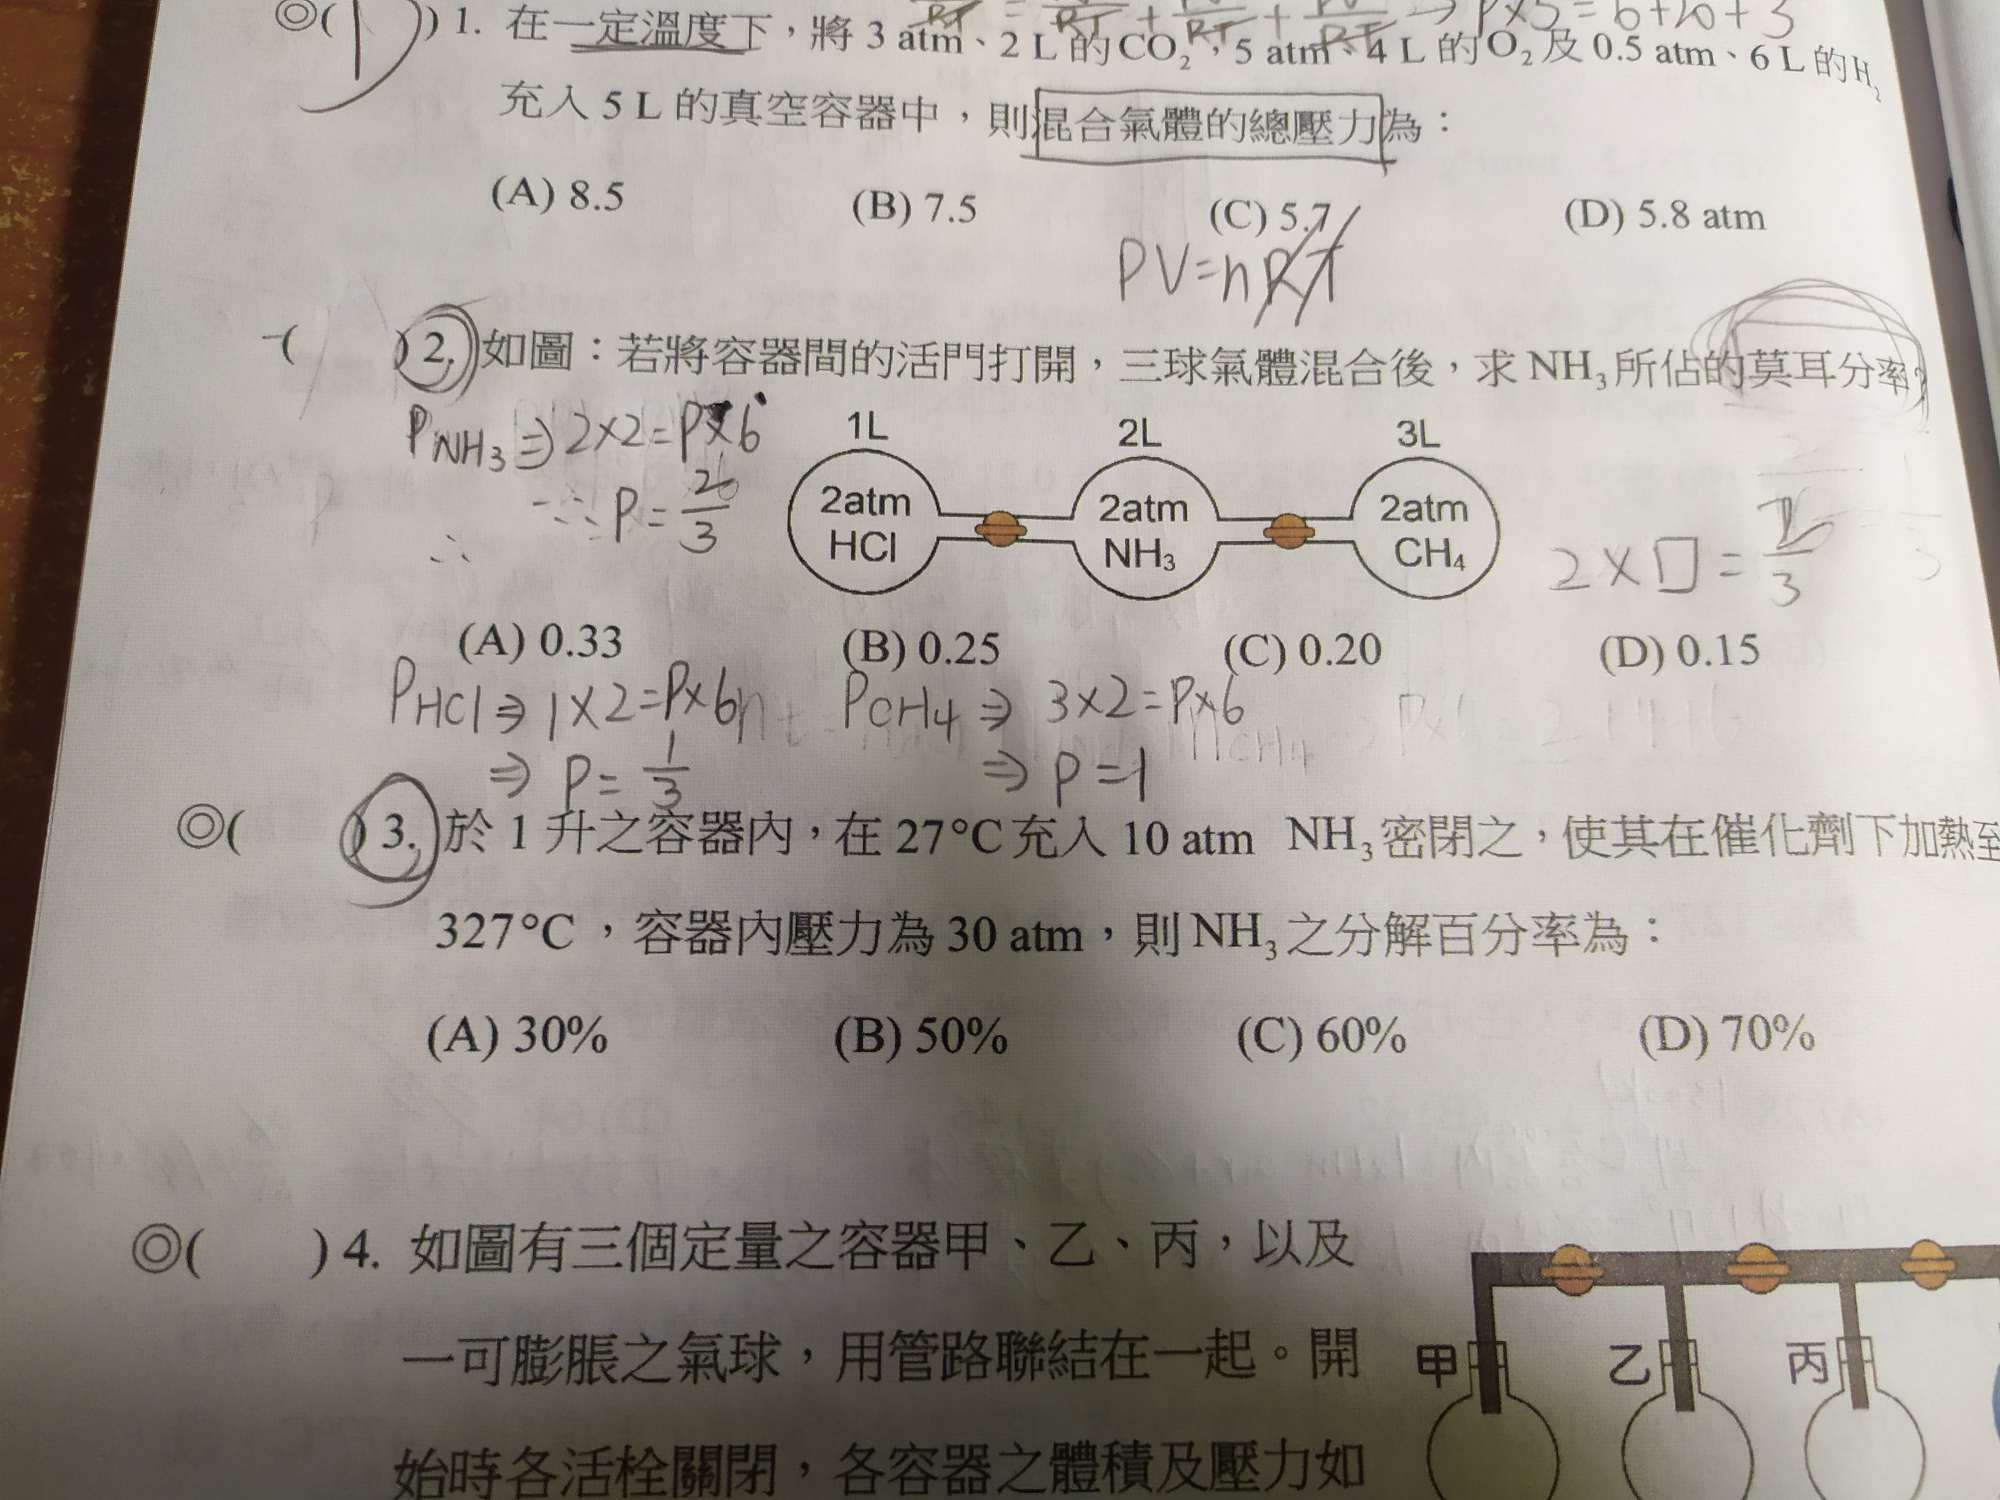 ◎( ) 1. 在一定溫度下，將 3 atm、2 L 的 CO₂，5 atm、4 L 的 O₂ 及 0.5 atm、6 L 的 H₂
充入 5 L 的真空容器中，則混合氣體的總壓力為：
(A) 8.5 (B) 7.5 (C) 5.7 (D) 5.8 atm
PV=nRT
( ) 2. 如圖：若將容器間的活門打開，三球氣體混合後，求 NH₃ 所佔的莫耳分率？
P NH₃ ⇒ 2×2=P×6
1L 2L 3L
2atm 2atm 2atm
HCl NH₃ CH₄
∴ P=2/3
2×□=2/3
(A) 0.33 (B) 0.25 (C) 0.20 (D) 0.15
P HCl ⇒ 1×2=P×6 P CH₄ ⇒ 3×2=P×6
⇒ P=1/3 ⇒ P=1
◎( ) 3. 於 1 升之容器內，在 27°C 充入 10 atm NH₃ 密閉之，使其在催化劑下加熱至
327°C，容器內壓力為 30 atm，則 NH₃ 之分解百分率為：
(A) 30% (B) 50% (C) 60% (D) 70%
◎( ) 4. 如圖有三個定量之容器甲、乙、丙，以及
一可膨脹之氣球，用管路聯結在一起。開
甲 乙 丙
始時各活栓關閉，各容器之體積及壓力如